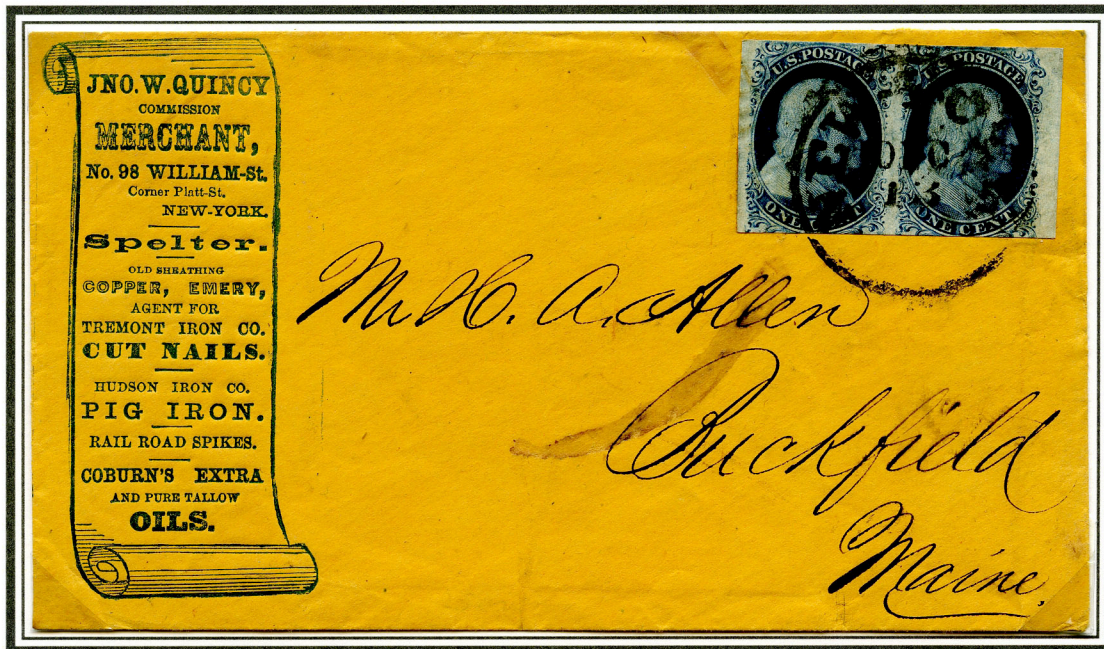 JNO. W. QUINCY
COMMISSION
MERCHANT,
No. 98 WILLIAM-St.
Corner Platt-St.
NEW-YORK.
Spelter.
OLD SHEATHING
COPPER, EMERY,
AGENT FOR
TREMONT IRON CO.
CUT NAILS.
HUDSON IRON CO.
PIG IRON.
RAIL ROAD SPIKES.
COBURN'S EXTRA
AND PURE TALLOW
OILS.
U.S. POSTAGE
ONE CENT
U.S. POSTAGE
ONE CENT
DEC
13
Mr. H. A. Allen
Buckfield
Maine.